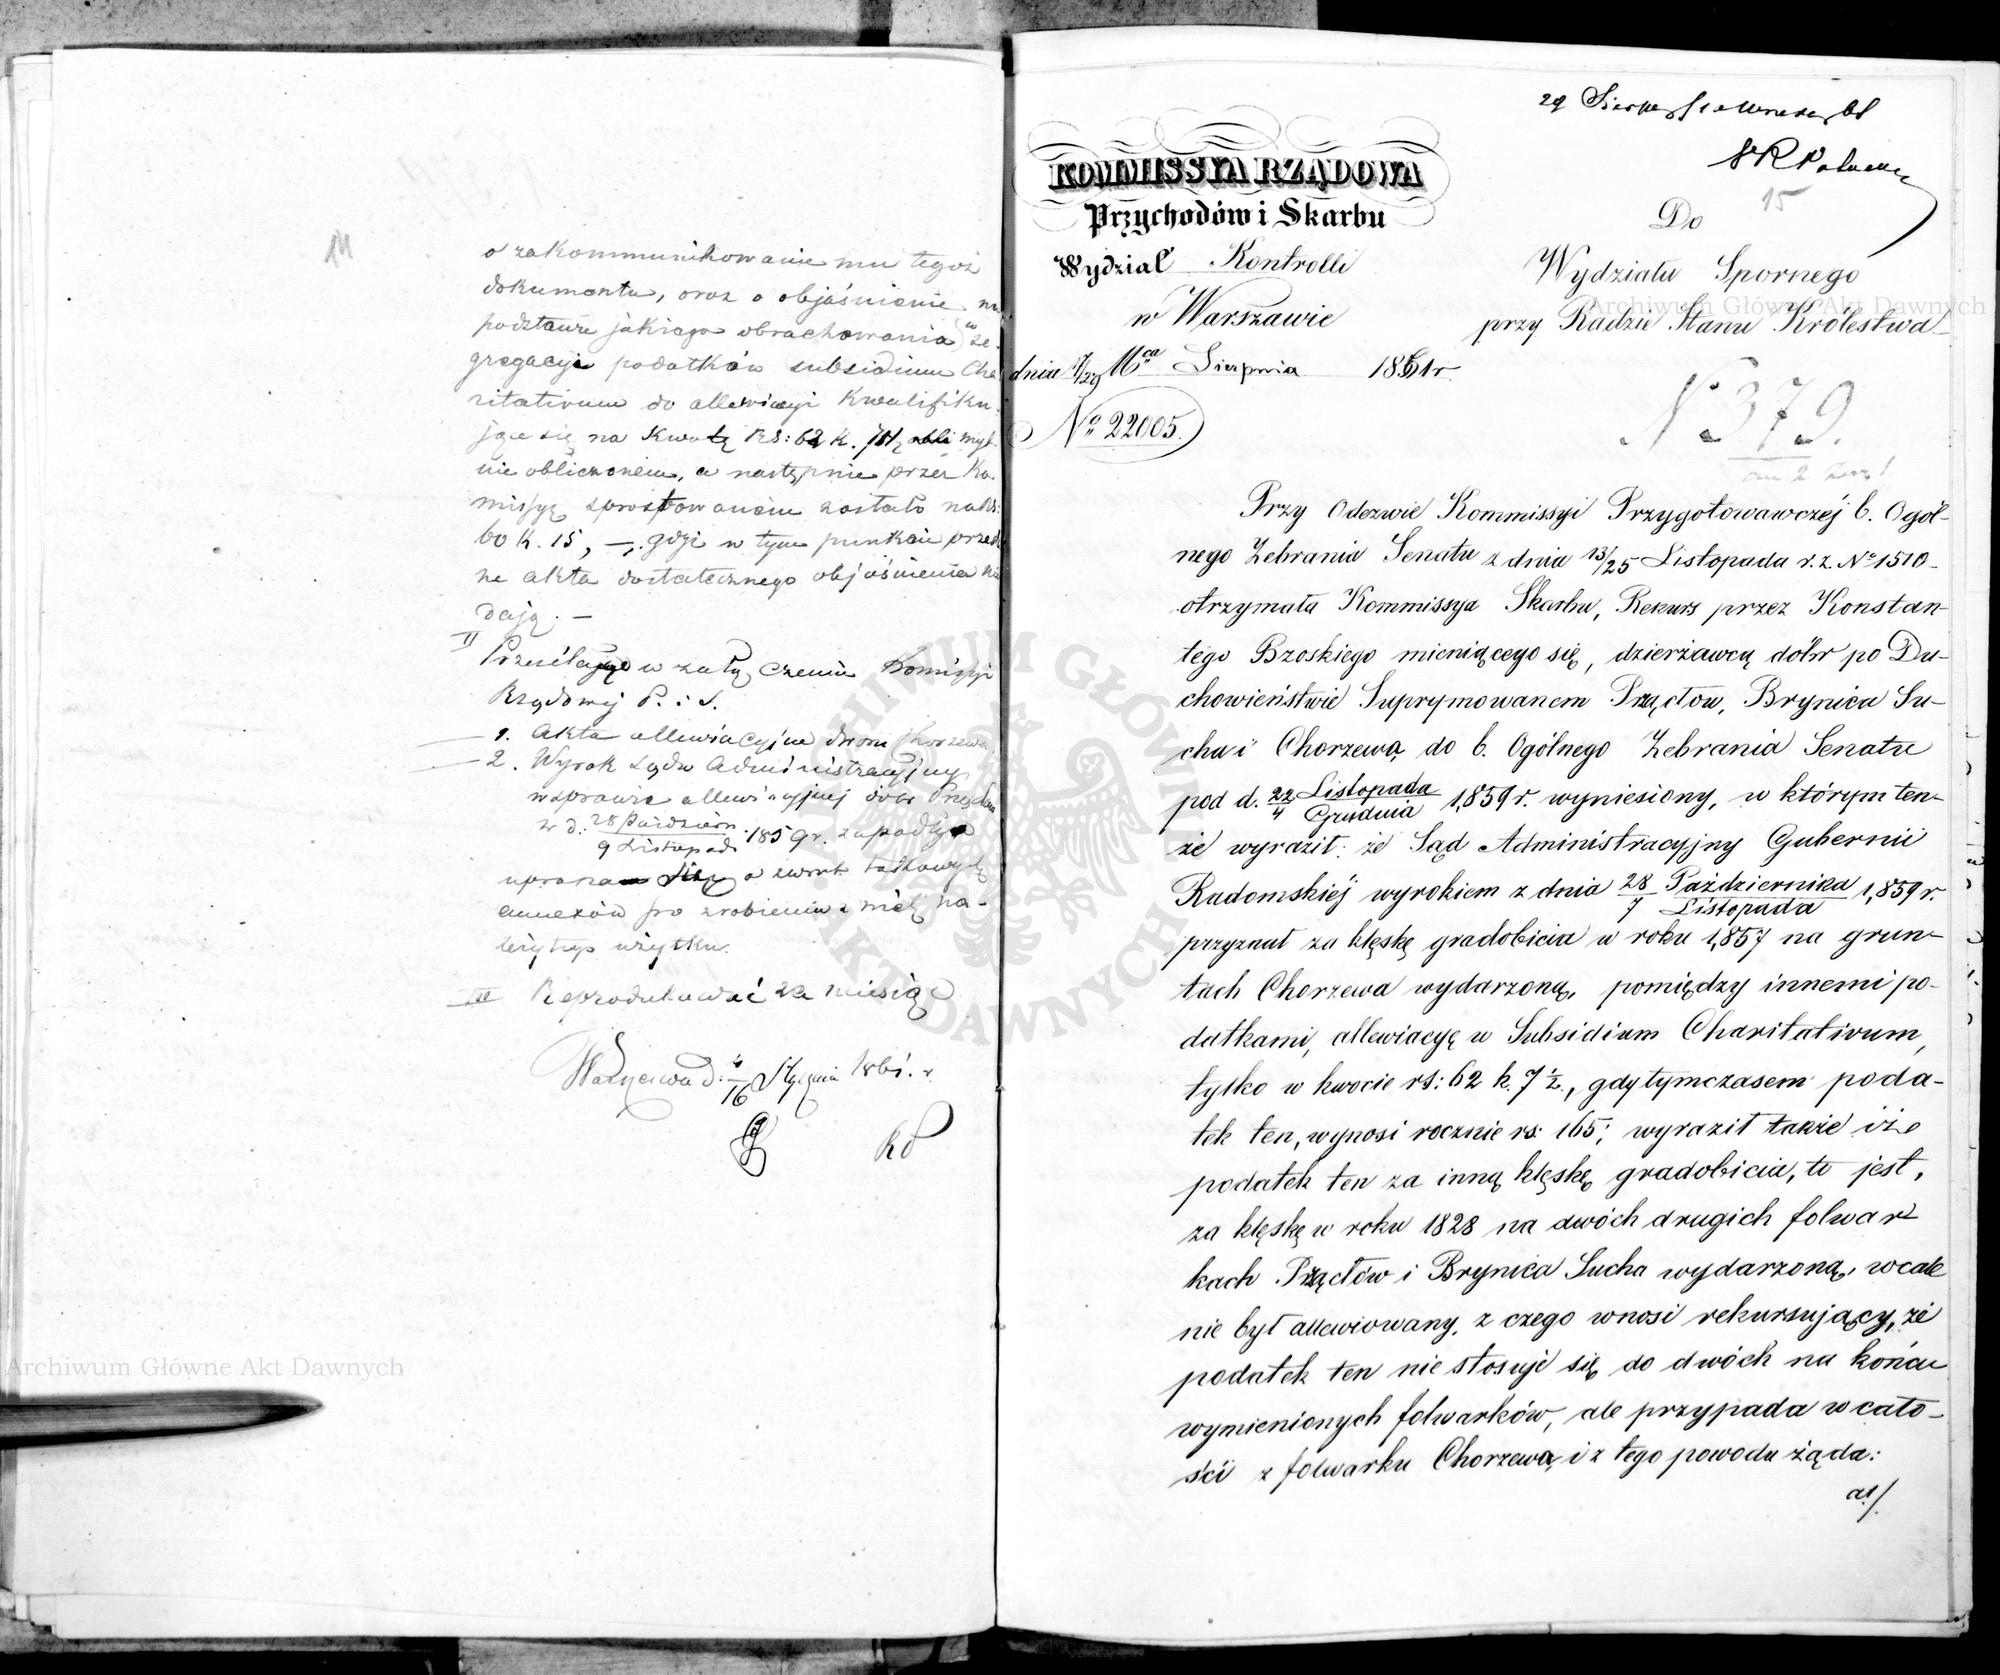 14
o zakommunikowanie mu tegoż
dokumentu, oraz o objaśnienie na
podstawie jakiego obrachowania
gregacyi podatków subsidium Cha
ritativum do allewiacyi kwalifiku
jące się na kwotę Rs: 62 k. 7½ myl
nie obliczonem, a następnie przez Ko
missyę sprostowanem zostało na Rs:
60 k. 15, —, gdyż w tym punkcie przed
ne akta dostatecznego objaśnienia nie
dają. —
II Przesyłając w załączeniu Komissyi
Rządowej P. i S.
1. Akta allewiacyjne
2. Wyrok Sądu Administracyjnego
w sprawie allewiacyjnej dóbr
w d: 28 Paździer. / 9 Listopada 1859 r. zapadły
uprasza o zwrot takowych
annexów po zrobieniu z nich na-
leżytego użytku.
III Reprodukować za miesiąc
Warszawa d: 4/16 Stycznia 1861. r.
29 Sierpnia
15
KOMMISSYA RZĄDOWA
Przychodów i Skarbu
Wydział Kontrolli
w Warszawie
dnia 17/29 Mca Sierpnia 1861 r.
No 22005.
Do
Wydziału Spornego
przy Radzie Stanu Królestwa
N 379.
Przy Odezwie Kommissyi Przygotowawczéj b. Ogól-
nego Zebrania Senatu z dnia 13/25 Listopada r. z. No 1510
otrzymała Kommissya Skarbu, Rekurs przez Konstan-
tego Brzoskiego mieniącego się, dzierżawcą dóbr po Du-
chowieństwie Suprymowanem Przęcłów, Brynica Su-
cha i Chorzewa, do b. Ogólnego Zebrania Senatu
pod d. 22 Listopada / 4 Grudnia 1,859 r. wyniesiony, w którym ten-
że wyraził: że Sąd Administracyjny Gubernii
Radomskiéj wyrokiem z dnia 28 Października / 7 Listopada 1,859 r.
przyznał za klęskę gradobicia w roku 1,857 na grun-
tach Chorzewa wydarzoną, pomiędzy innemi po-
datkami, allewiacyę w Subsidium Charitativum,
tylko w kwocie rs: 62 k. 7½, gdy tymczasem poda-
tek ten, wynosi rocznie rs: 165; wyraził także iże
podatek ten za inną klęskę gradobicia, to jest,
za klęskę w roku 1828 na dwóch drugich folwar
kach Przęcłów i Brynica Sucha wydarzoną, wcale
nie był allewiowany, z czego wnosi rekursujący, że
podatek ten nie stosuje się do dwóch na końcu
wymienionych folwarków, ale przypada w cało-
ści z folwarku Chorzewa, i z tego powodu żąda:
a/.
Archiwum Główne Akt Dawnych
Archiwum Główne Akt Dawnych
ARCHIWUM GŁÓWNE AKT DAWNYCH